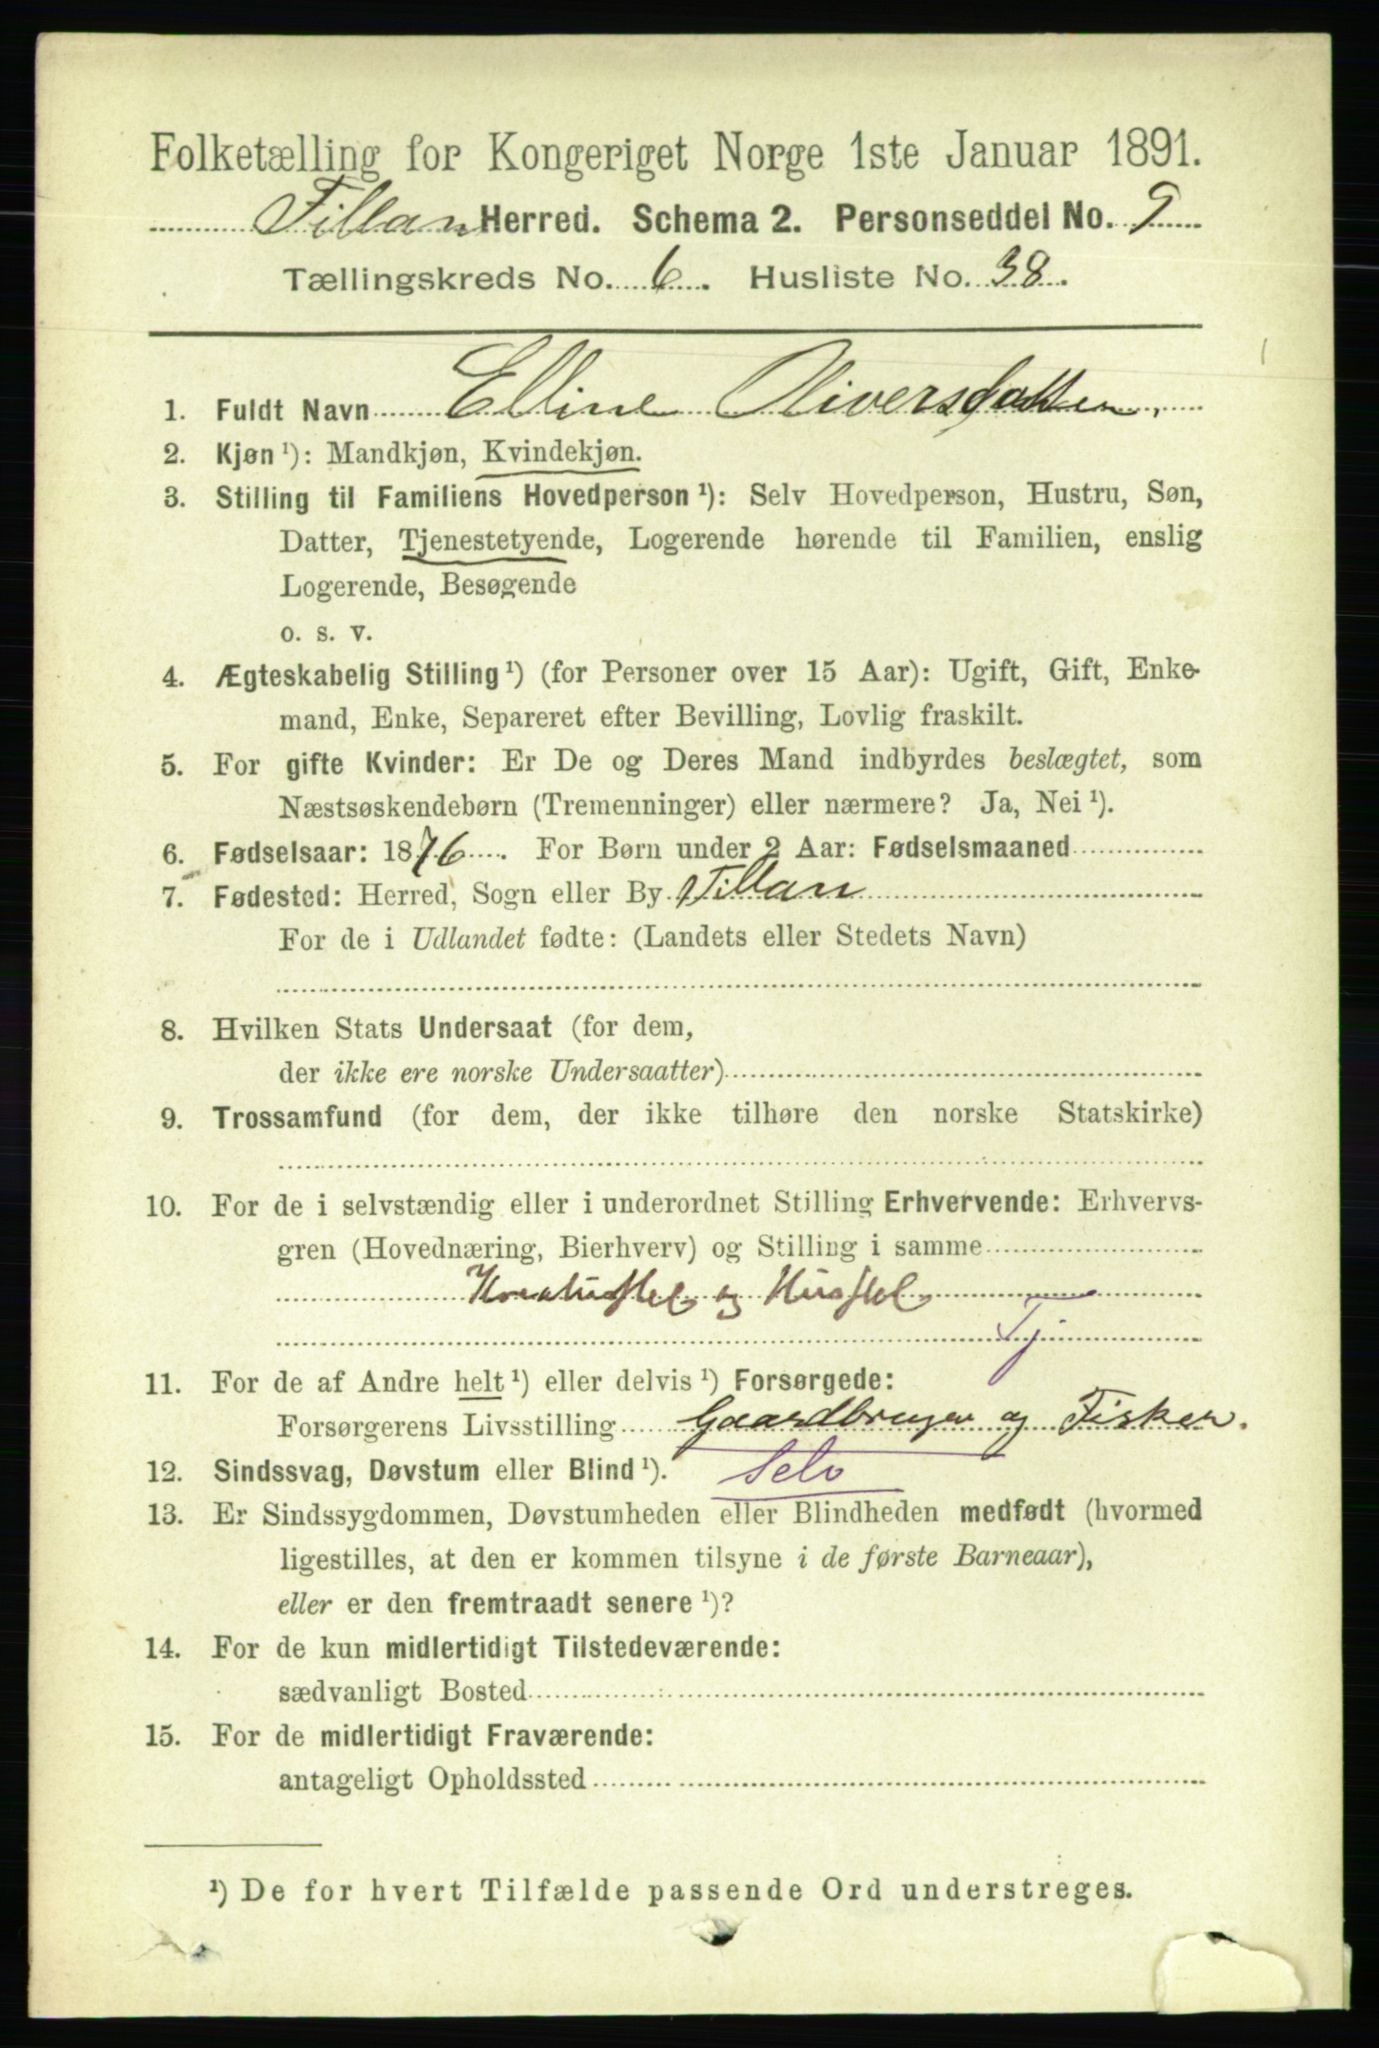 Folketælling for Kongeriget Norge 1ste Januar 1891.
Fillan Herred. Schema 2. Personseddel No. 9
Tællingskreds No. 6. Husliste No. 38.
1. Fuldt Navn Elline Oliversdatter.
2. Kjøn ¹): Mandkjøn, Kvindekjøn.
3. Stilling til Familiens Hovedperson ¹): Selv Hovedperson, Hustru, Søn,
Datter, Tjenestetyende, Logerende hørende til Familien, enslig
Logerende, Besøgende
o. s. v.
4. Ægteskabelig Stilling ¹) (for Personer over 15 Aar): Ugift, Gift, Enke-
mand, Enke, Separeret efter Bevilling, Lovlig fraskilt.
5. For gifte Kvinder: Er De og Deres Mand indbyrdes beslægtet, som
Næstsøskendebørn (Tremenninger) eller nærmere? Ja, Nei ¹).
6. Fødselsaar: 1876. For Børn under 2 Aar: Fødselsmaaned
7. Fødested: Herred, Sogn eller By Fillan
For de i Udlandet fødte: (Landets eller Stedets Navn)
8. Hvilken Stats Undersaat (for dem,
der ikke ere norske Undersaatter)
9. Trossamfund (for dem, der ikke tilhøre den norske Statskirke)
10. For de i selvstændig eller i underordnet Stilling Erhvervende: Erhvervs-
gren (Hovednæring, Bierhverv) og Stilling i samme
og Husstel
Tj
11. For de af Andre helt ¹) eller delvis ¹) Forsørgede:
Forsørgerens Livsstilling Gaardbruger og Fisker.
12. Sindssvag, Døvstum eller Blind ¹). Selv
13. Er Sindssygdommen, Døvstumheden eller Blindheden medfødt (hvormed
ligestilles, at den er kommen tilsyne i de første Barneaar),
eller er den fremtraadt senere ¹)?
14. For de kun midlertidigt Tilstedeværende:
sædvanligt Bosted
15. For de midlertidigt Fraværende:
antageligt Opholdssted
¹) De for hvert Tilfælde passende Ord understreges.